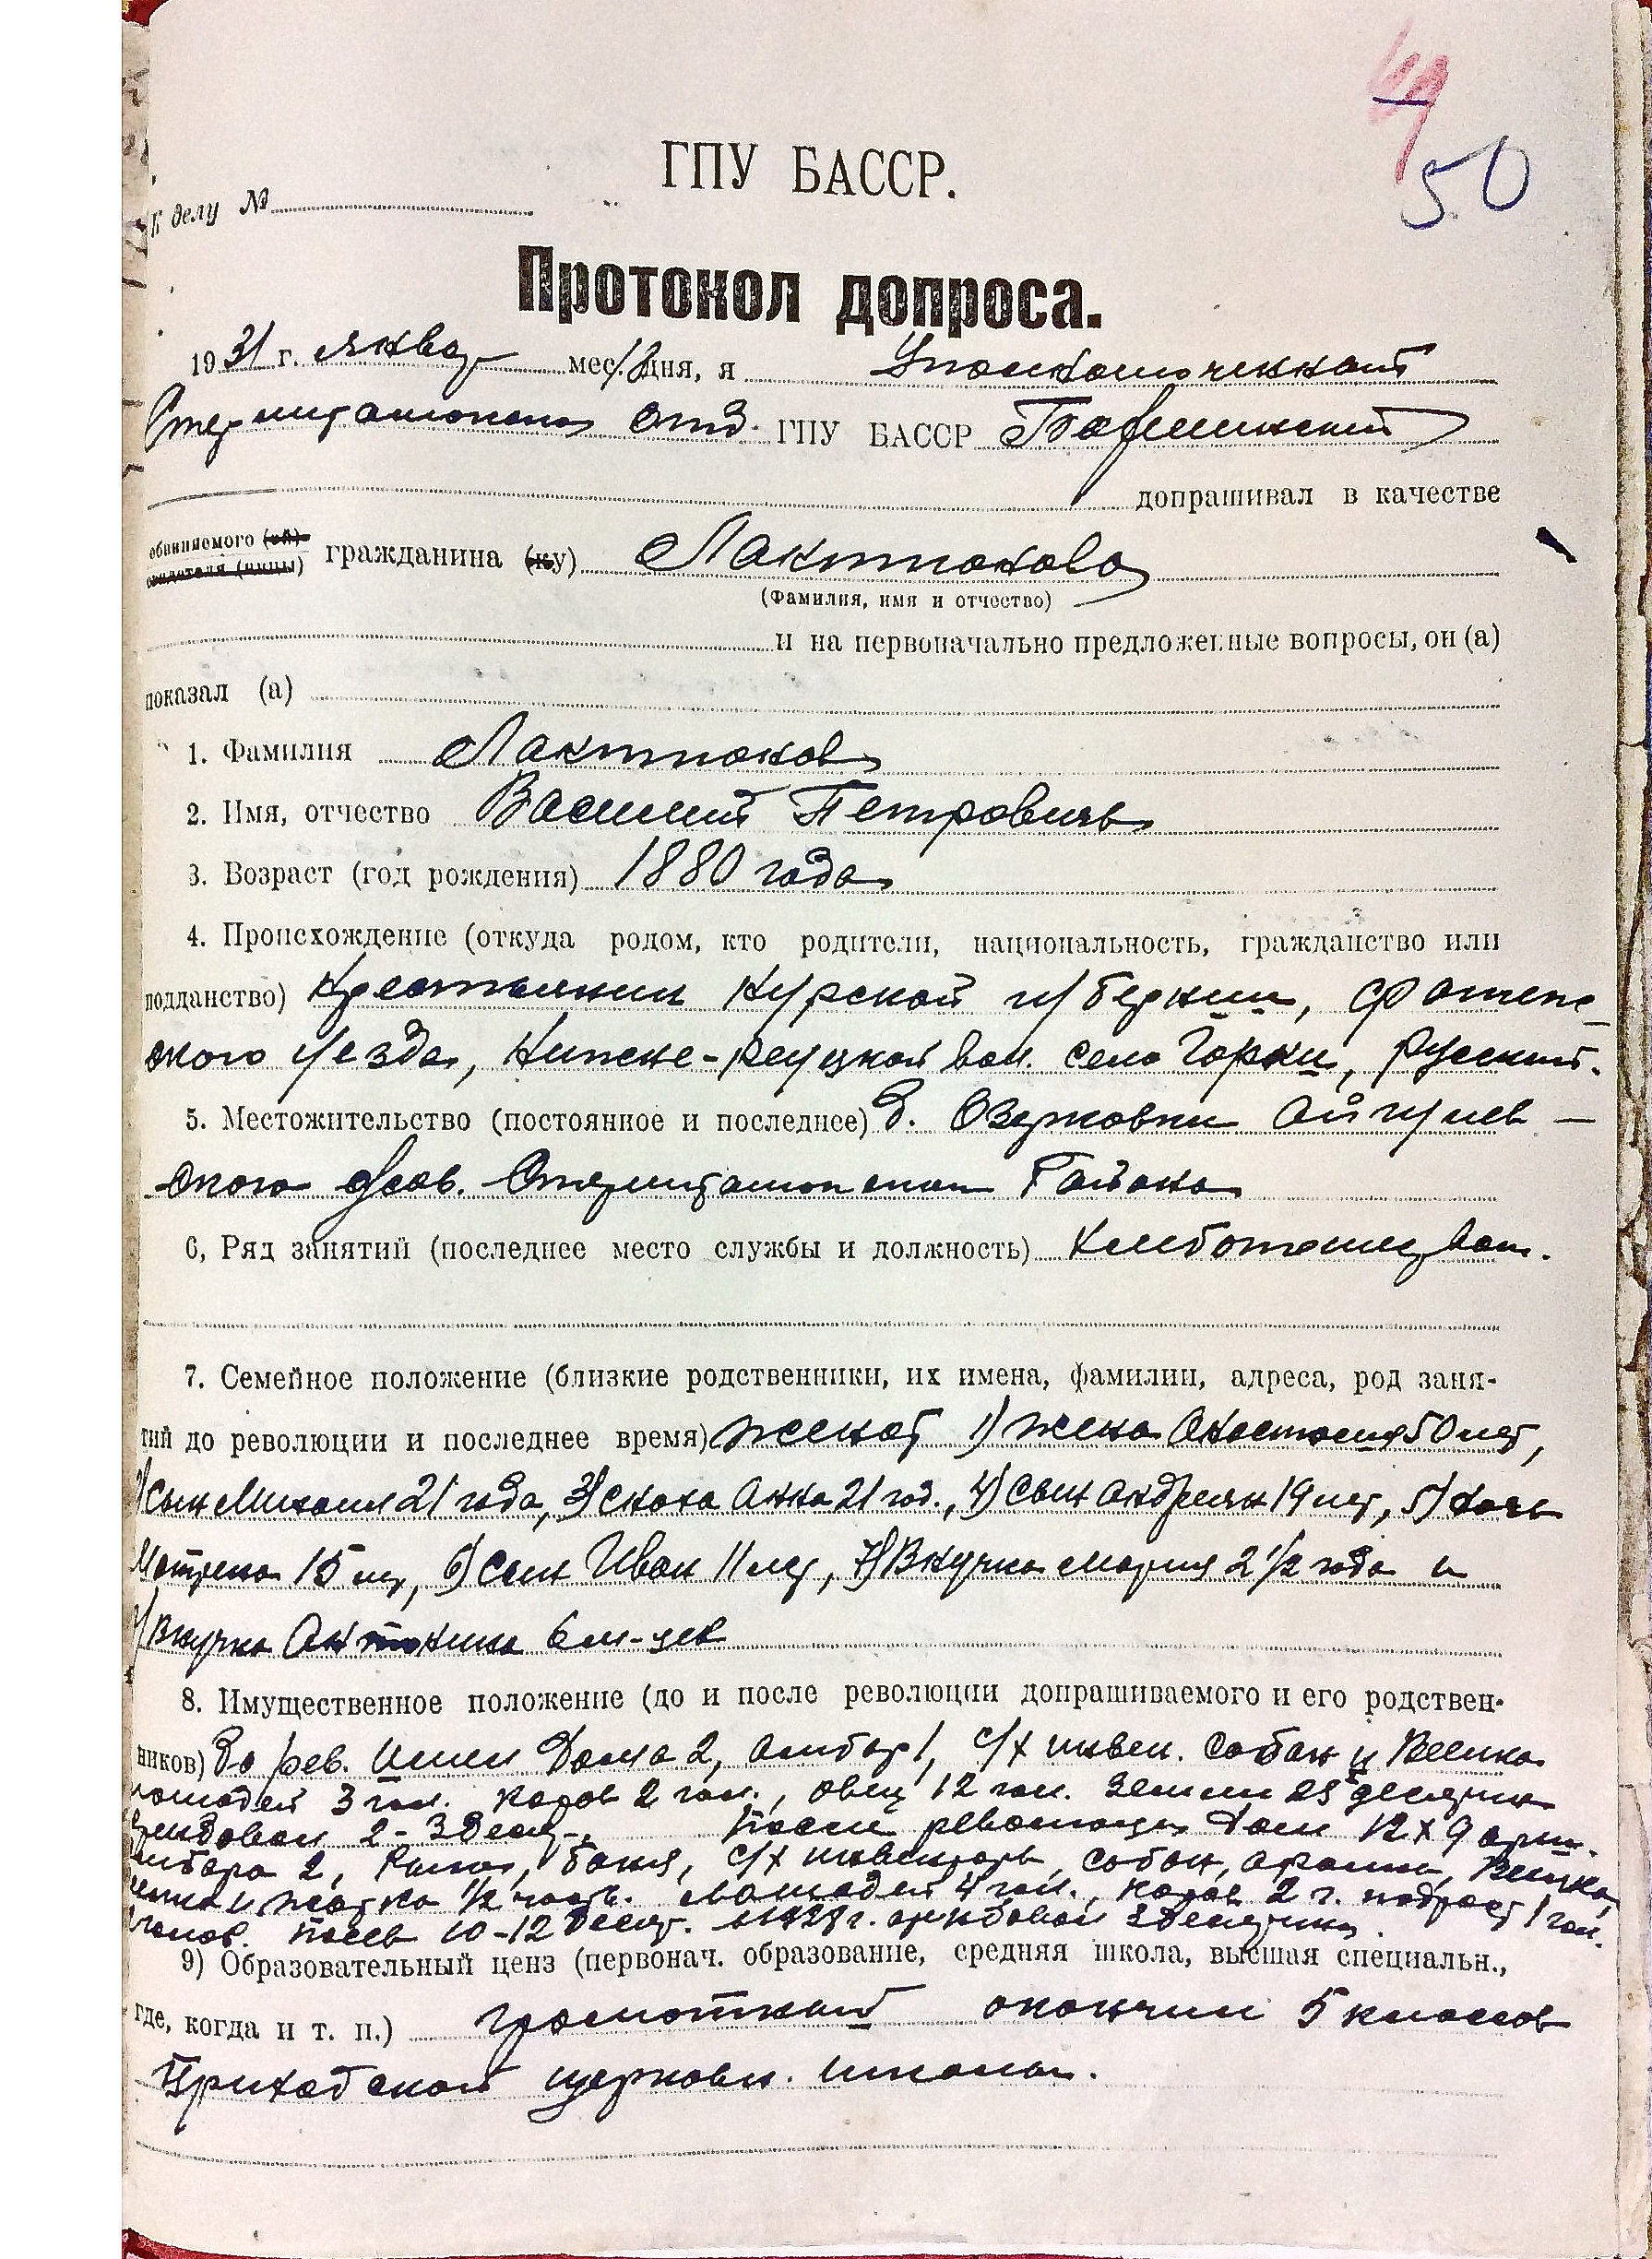 49
50
ГПУ БАССР.
К делу №
Протокол допроса.
1931 г. января мес. 12 дня, я Уполномоченный
Стерлитамакского отд. ГПУ БАССР
допрашивал в качестве
обвиняемого (ой)
свидетеля (ницы) гражданина (ку) Лактионова
(Фамилия, имя и отчество)
и на первоначально предложенные вопросы, он (а)
показал (а)
1. Фамилия Лактионов
2. Имя, отчество Василий Петровичь
3. Возраст (год рождения) 1880 года
4. Происхождение (откуда родом, кто родители, национальность, гражданство или
подданство) Крестьянин Курской губернии, Фатеж-
ского уезда, Нижне-Реуцкой вол. село Горки, Русский.
5. Местожительство (постоянное и последнее) д. Озерковки Айгулев-
ского с/сов. Стерлитамакского Района
6, Ряд занятий (последнее место службы и должность) Хлебопашеств.
7. Семейное положение (близкие родственники, их имена, фамилии, адреса, род заня-
тий до революции и последнее время) женат 1) жена Анастасия 50 лет,
2) сын Михаил 21 года, 3) сноха Анна 21 год., 4) сын Андреян 19 лет, 5) дочь
Матрена 15 лет, 6) сын Иван 11 лет, 7) Внучка Мария 2 1/2 года и
8) Внучка Антонина 6 м-цев
8. Имущественное положение (до и после революции допрашиваемого и его родствен-
ников) до рев. имел Дома 2, амбар 1, с/х инвен. Сабан и Веялка
лошадей 3 гол. коров 2 гол., овец 12 гол. земли 25 десятин
арендовал 2-3 десят. После революции дом 12 х 9 арш.
амбара 2, баня, с/х инвентарь, сабан, Веялка,
и жатка 1/2 часть. Лошадей 4 гол., коров 2 г. подрост 1 гол.
Посев 10-12 десят. 1928 г. арендовал 3 десятины.
9) Образовательный ценз (первонач. образование, средняя школа, высшая специальн.,
где, когда и т. п.) грамотный окончил 5 классов
Приходской церковн. школы.